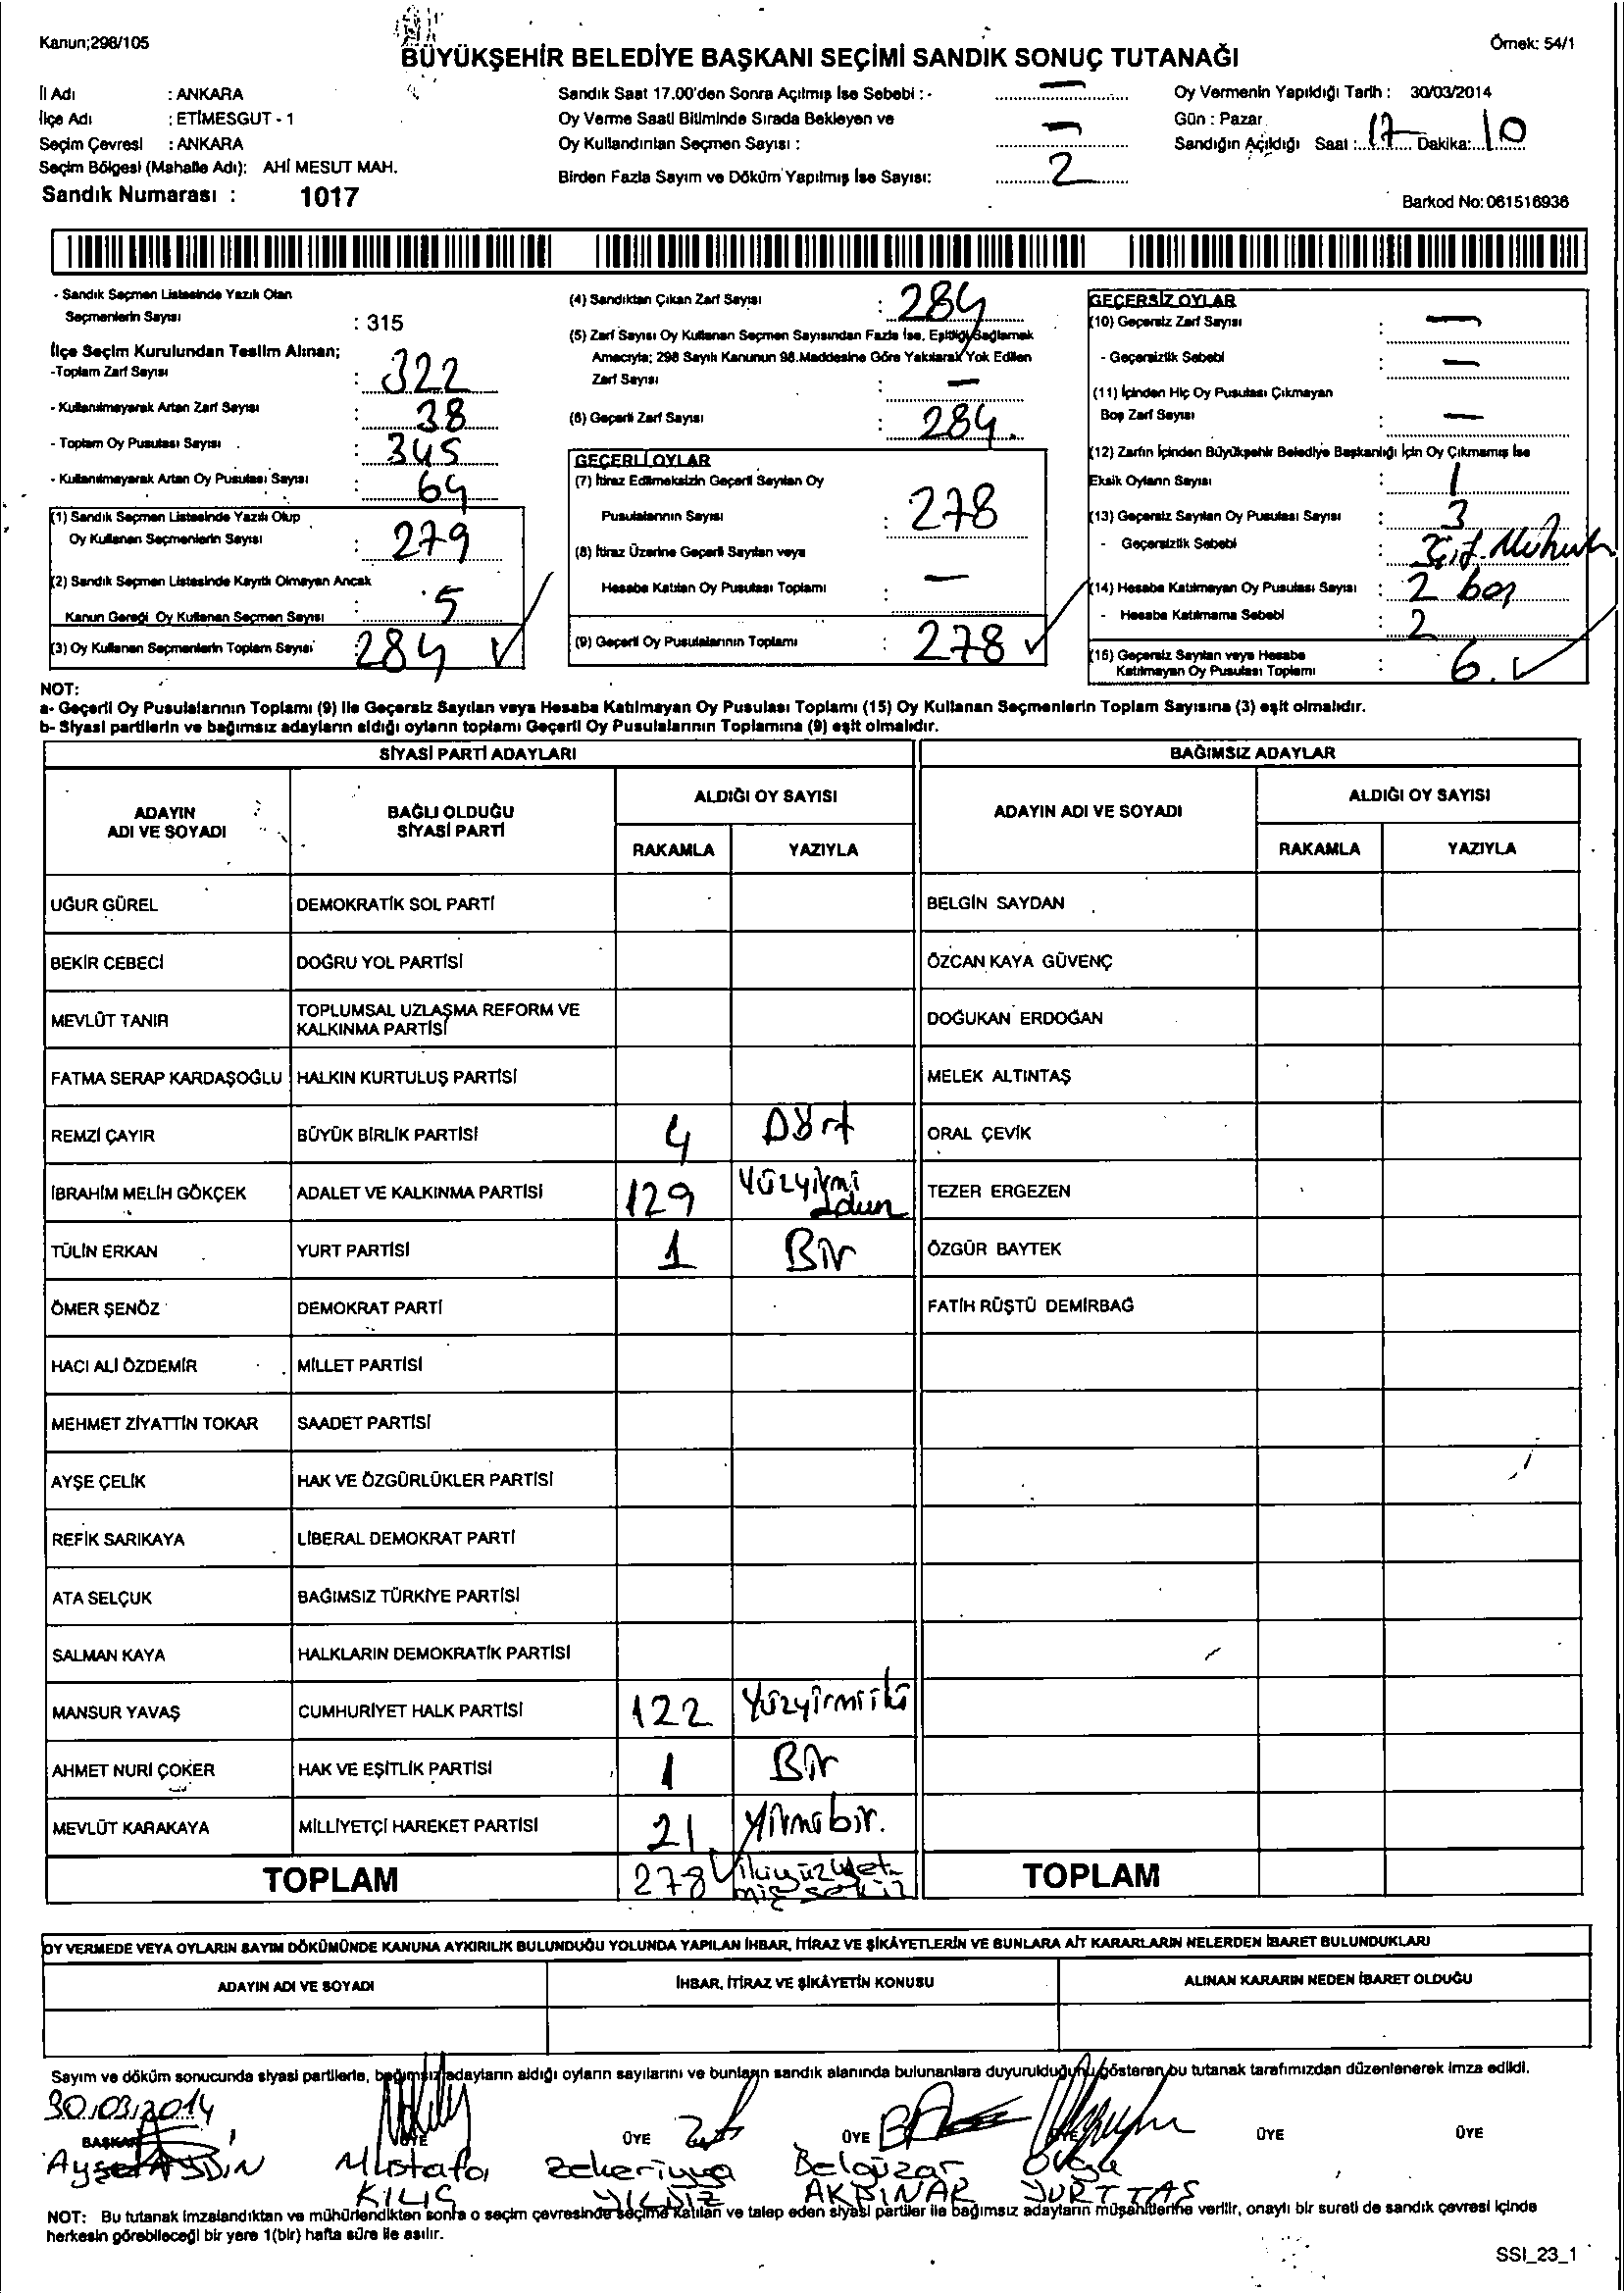 Kanun;298/105
Örnek: 54/1
BÜYÜKŞEHİR BELEDİYE BAŞKANI SEÇİMİ SANDIK SONUÇ TUTANAĞI
İl Adı : ANKARA
İlçe Adı : ETİMESGUT - 1
Seçim Çevresi : ANKARA
Seçim Bölgesi (Mahalle Adı): AHİ MESUT MAH.
Sandık Numarası : 1017
Sandık Saat 17.00'den Sonra Açılmış İse Sebebi : - —
Oy Verme Saati Bitiminde Sırada Bekleyen ve
Oy Kullandırılan Seçmen Sayısı : —
Birden Fazla Sayım ve Döküm Yapılmış İse Sayısı: 2
Oy Vermenin Yapıldığı Tarih : 30/03/2014
Gün : Pazar
Sandığın Açıldığı Saat : 17 Dakika: 10
Barkod No: 061516936
- Sandık Seçmen Listesinde Yazılı Olan
Seçmenlerin Sayısı : 315
İlçe Seçim Kurulundan Teslim Alınan;
-Toplam Zarf Sayısı : 322
- Kullanılmayarak Artan Zarf Sayısı : 38
- Toplam Oy Pusulası Sayısı : 345
- Kullanılmayarak Artan Oy Pusulası Sayısı : 64
(1) Sandık Seçmen Listesinde Yazılı Olup
Oy Kullanan Seçmenlerin Sayısı : 279
(2) Sandık Seçmen Listesinde Kayıtlı Olmayan Ancak
Kanun Gereği Oy Kullanan Seçmen Sayısı : 5
(3) Oy Kullanan Seçmenlerin Toplam Sayısı 284 ✓
(4) Sandıktan Çıkan Zarf Sayısı : 284
(5) Zarf Sayısı Oy Kullanan Seçmen Sayısından Fazla İse, Eşitliği Sağlamak
Amacıyla; 298 Sayılı Kanunun 98.Maddesine Göre Yakılarak Yok Edilen
Zarf Sayısı : —
(6) Geçerli Zarf Sayısı : 284.
GEÇERLİ OYLAR
(7) İtiraz Edilmeksizin Geçerli Sayılan Oy
Pusulalarının Sayısı : 278
(8) İtiraz Üzerine Geçerli Sayılan veya
Hesaba Katılan Oy Pusulası Toplamı : —
(9) Geçerli Oy Pusulalarının Toplamı : 278 ✓
GEÇERSİZ OYLAR
(10) Geçersiz Zarf Sayısı : —
- Geçersizlik Sebebi : —
(11) İçinden Hiç Oy Pusulası Çıkmayan
Boş Zarf Sayısı : —
(12) Zarfın İçinden Büyükşehir Belediye Başkanlığı İçin Oy Çıkmamış İse
Eksik Oyların Sayısı : 1
(13) Geçersiz Sayılan Oy Pusulası Sayısı : 3
- Geçersizlik Sebebi : Çift Mühür
(14) Hesaba Katılmayan Oy Pusulası Sayısı : 2 boş
- Hesaba Katılmama Sebebi : 2
(15) Geçersiz Sayılan veya Hesaba
Katılmayan Oy Pusulası Toplamı : 6. ✓
NOT:
a- Geçerli Oy Pusulalarının Toplamı (9) ile Geçersiz Sayılan veya Hesaba Katılmayan Oy Pusulası Toplamı (15) Oy Kullanan Seçmenlerin Toplam Sayısına (3) eşit olmalıdır.
b- Siyasi partilerin ve bağımsız adayların aldığı oyların toplamı Geçerli Oy Pusulalarının Toplamına (9) eşit olmalıdır.
SİYASİ PARTİ ADAYLARI
BAĞIMSIZ ADAYLAR
ADAYIN
ADI VE SOYADI
BAĞLI OLDUĞU
SİYASİ PARTİ
ALDIĞI OY SAYISI
RAKAMLA YAZIYLA
ADAYIN ADI VE SOYADI
ALDIĞI OY SAYISI
RAKAMLA YAZIYLA
UĞUR GÜREL DEMOKRATİK SOL PARTİ BELGİN SAYDAN
BEKİR CEBECİ DOĞRU YOL PARTİSİ ÖZCAN KAYA GÜVENÇ
MEVLÜT TANIR TOPLUMSAL UZLAŞMA REFORM VE
KALKINMA PARTİSİ DOĞUKAN ERDOĞAN
FATMA SERAP KARDAŞOĞLU HALKIN KURTULUŞ PARTİSİ MELEK ALTINTAŞ
REMZİ ÇAYIR BÜYÜK BİRLİK PARTİSİ 4 Dört ORAL ÇEVİK
İBRAHİM MELİH GÖKÇEK ADALET VE KALKINMA PARTİSİ 129 Yüzyirmi TEZER ERGEZEN
TÜLİN ERKAN YURT PARTİSİ 1 Bir ÖZGÜR BAYTEK
ÖMER ŞENÖZ DEMOKRAT PARTİ FATİH RÜŞTÜ DEMİRBAĞ
HACI ALİ ÖZDEMİR MİLLET PARTİSİ
MEHMET ZİYATTİN TOKAR SAADET PARTİSİ
AYŞE ÇELİK HAK VE ÖZGÜRLÜKLER PARTİSİ
REFİK SARIKAYA LİBERAL DEMOKRAT PARTİ
ATA SELÇUK BAĞIMSIZ TÜRKİYE PARTİSİ
SALMAN KAYA HALKLARIN DEMOKRATİK PARTİSİ
MANSUR YAVAŞ CUMHURİYET HALK PARTİSİ 122 Yüzyirmiiki
AHMET NURİ ÇOKER HAK VE EŞİTLİK PARTİSİ 1 Bir
MEVLÜT KARAKAYA MİLLİYETÇİ HAREKET PARTİSİ 21. Yirmibir.
TOPLAM 278 ✓ ikiyüzyet-
mişsekiz
TOPLAM
OY VERMEDE VEYA OYLARIN SAYIM DÖKÜMÜNDE KANUNA AYKIRILIK BULUNDUĞU YOLUNDA YAPILAN İHBAR, İTİRAZ VE ŞİKÂYETLERİN VE BUNLARA AİT KARARLARIN NELERDEN İBARET BULUNDUKLARI
ADAYIN ADI VE SOYADI İHBAR, İTİRAZ VE ŞİKÂYETİN KONUSU ALINAN KARARIN NEDEN İBARET OLDUĞU
Sayım ve döküm sonucunda siyasi partilerle, bağımsız adayların aldığı oyların sayılarını ve bunların sandık alanında bulunanlara duyurulduğunu gösteren bu tutanak tarafımızdan düzenlenerek imza edildi.
30.03.2014
BAŞKAN ÜYE ÜYE ÜYE ÜYE ÜYE ÜYE
Aysel AYDIN Mustafa Zekeriyya Belgüzar
KILIÇ YILDIZ AKPINAR YURTTAŞ
NOT: Bu tutanak imzalandıktan ve mühürlendikten sonra o seçim çevresinde seçime katılan ve talep eden siyasi partiler ile bağımsız adayların müşahitlerine verilir, onaylı bir sureti de sandık çevresi içinde
herkesin görebileceği bir yere 1(bir) hafta süre ile asılır.
SSI_23_1